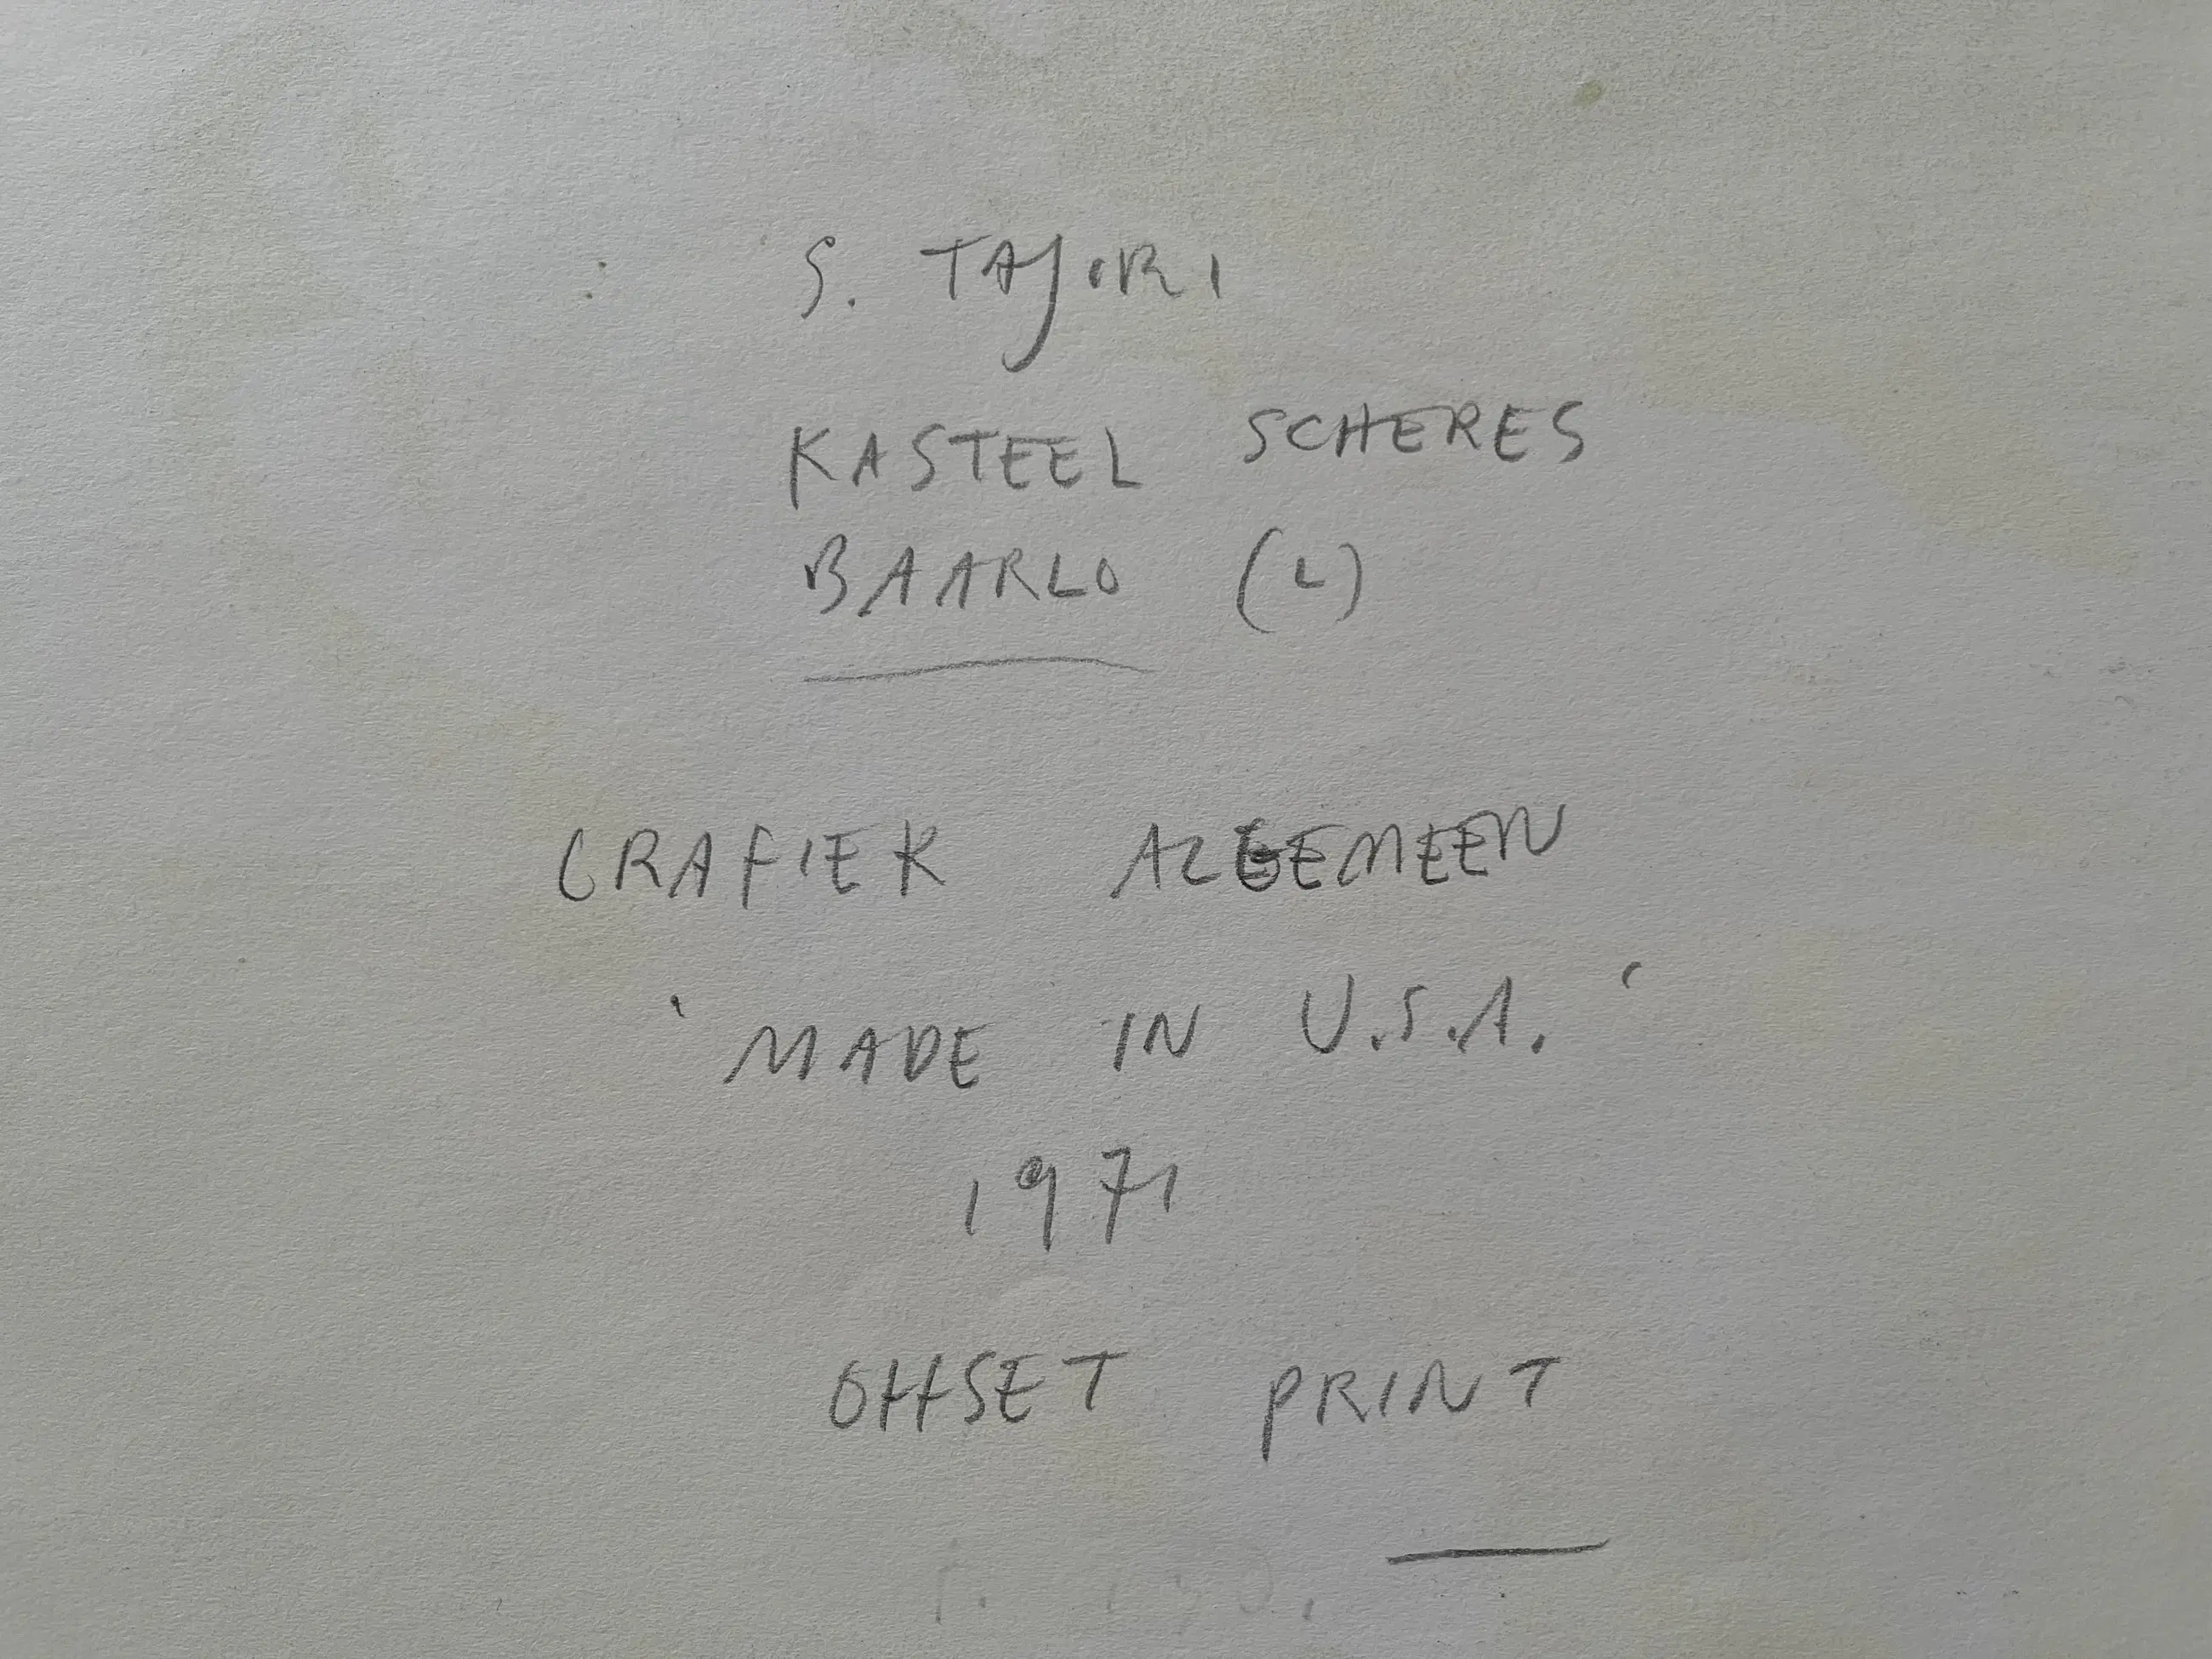 S. TAJIRI
KASTEEL SCHERES
BAARLO (L)
GRAFIEK ALGEMEEN
'MADE IN U.S.A.'
1971
OFFSET PRINT